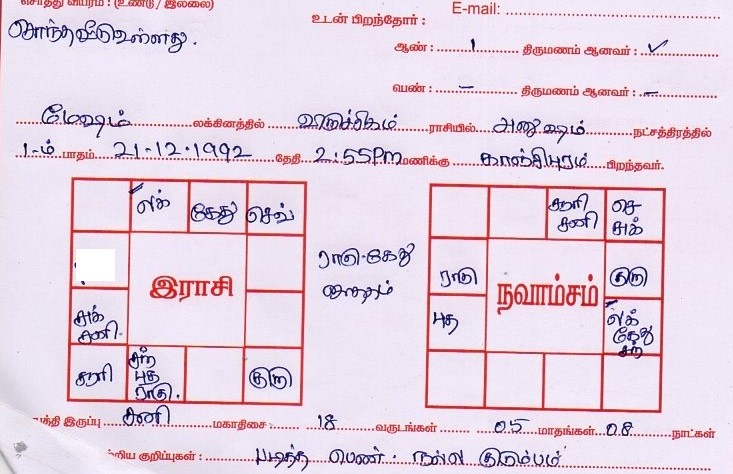 சொத்து விபரம் : (உண்டு / இல்லை)
E-mail:
சொந்த வீடு உள்ளது.
உடன் பிறந்தோர் :
ஆண் : 1 திருமணம் ஆனவர் : ✓
பெண் : – திருமணம் ஆனவர் : –
மேஷம் லக்கினத்தில் விருச்சிகம் ராசியில் அனுஷம் நட்சத்திரத்தில்
1-ம் பாதம் 21-12-1992 தேதி 2:55Pm மணிக்கு காஞ்சிபுரம் பிறந்தவர்.
லக்
கேது
செவ்
சுக்
சனி
சூரி
சந்
புத
ராகு
குரு
இராசி
ராகு-கேது
சூரி
சனி
செ
சுக்
ராகு
குரு
புத
லக்
கேது
சந்
நவாம்சம்
இருப்பு சனி மகாதிசை : 18 வருடங்கள் 05 மாதங்கள் 08 நாட்கள்
குறிப்புகள் : படித்த பெண். நல்ல குடும்பம்